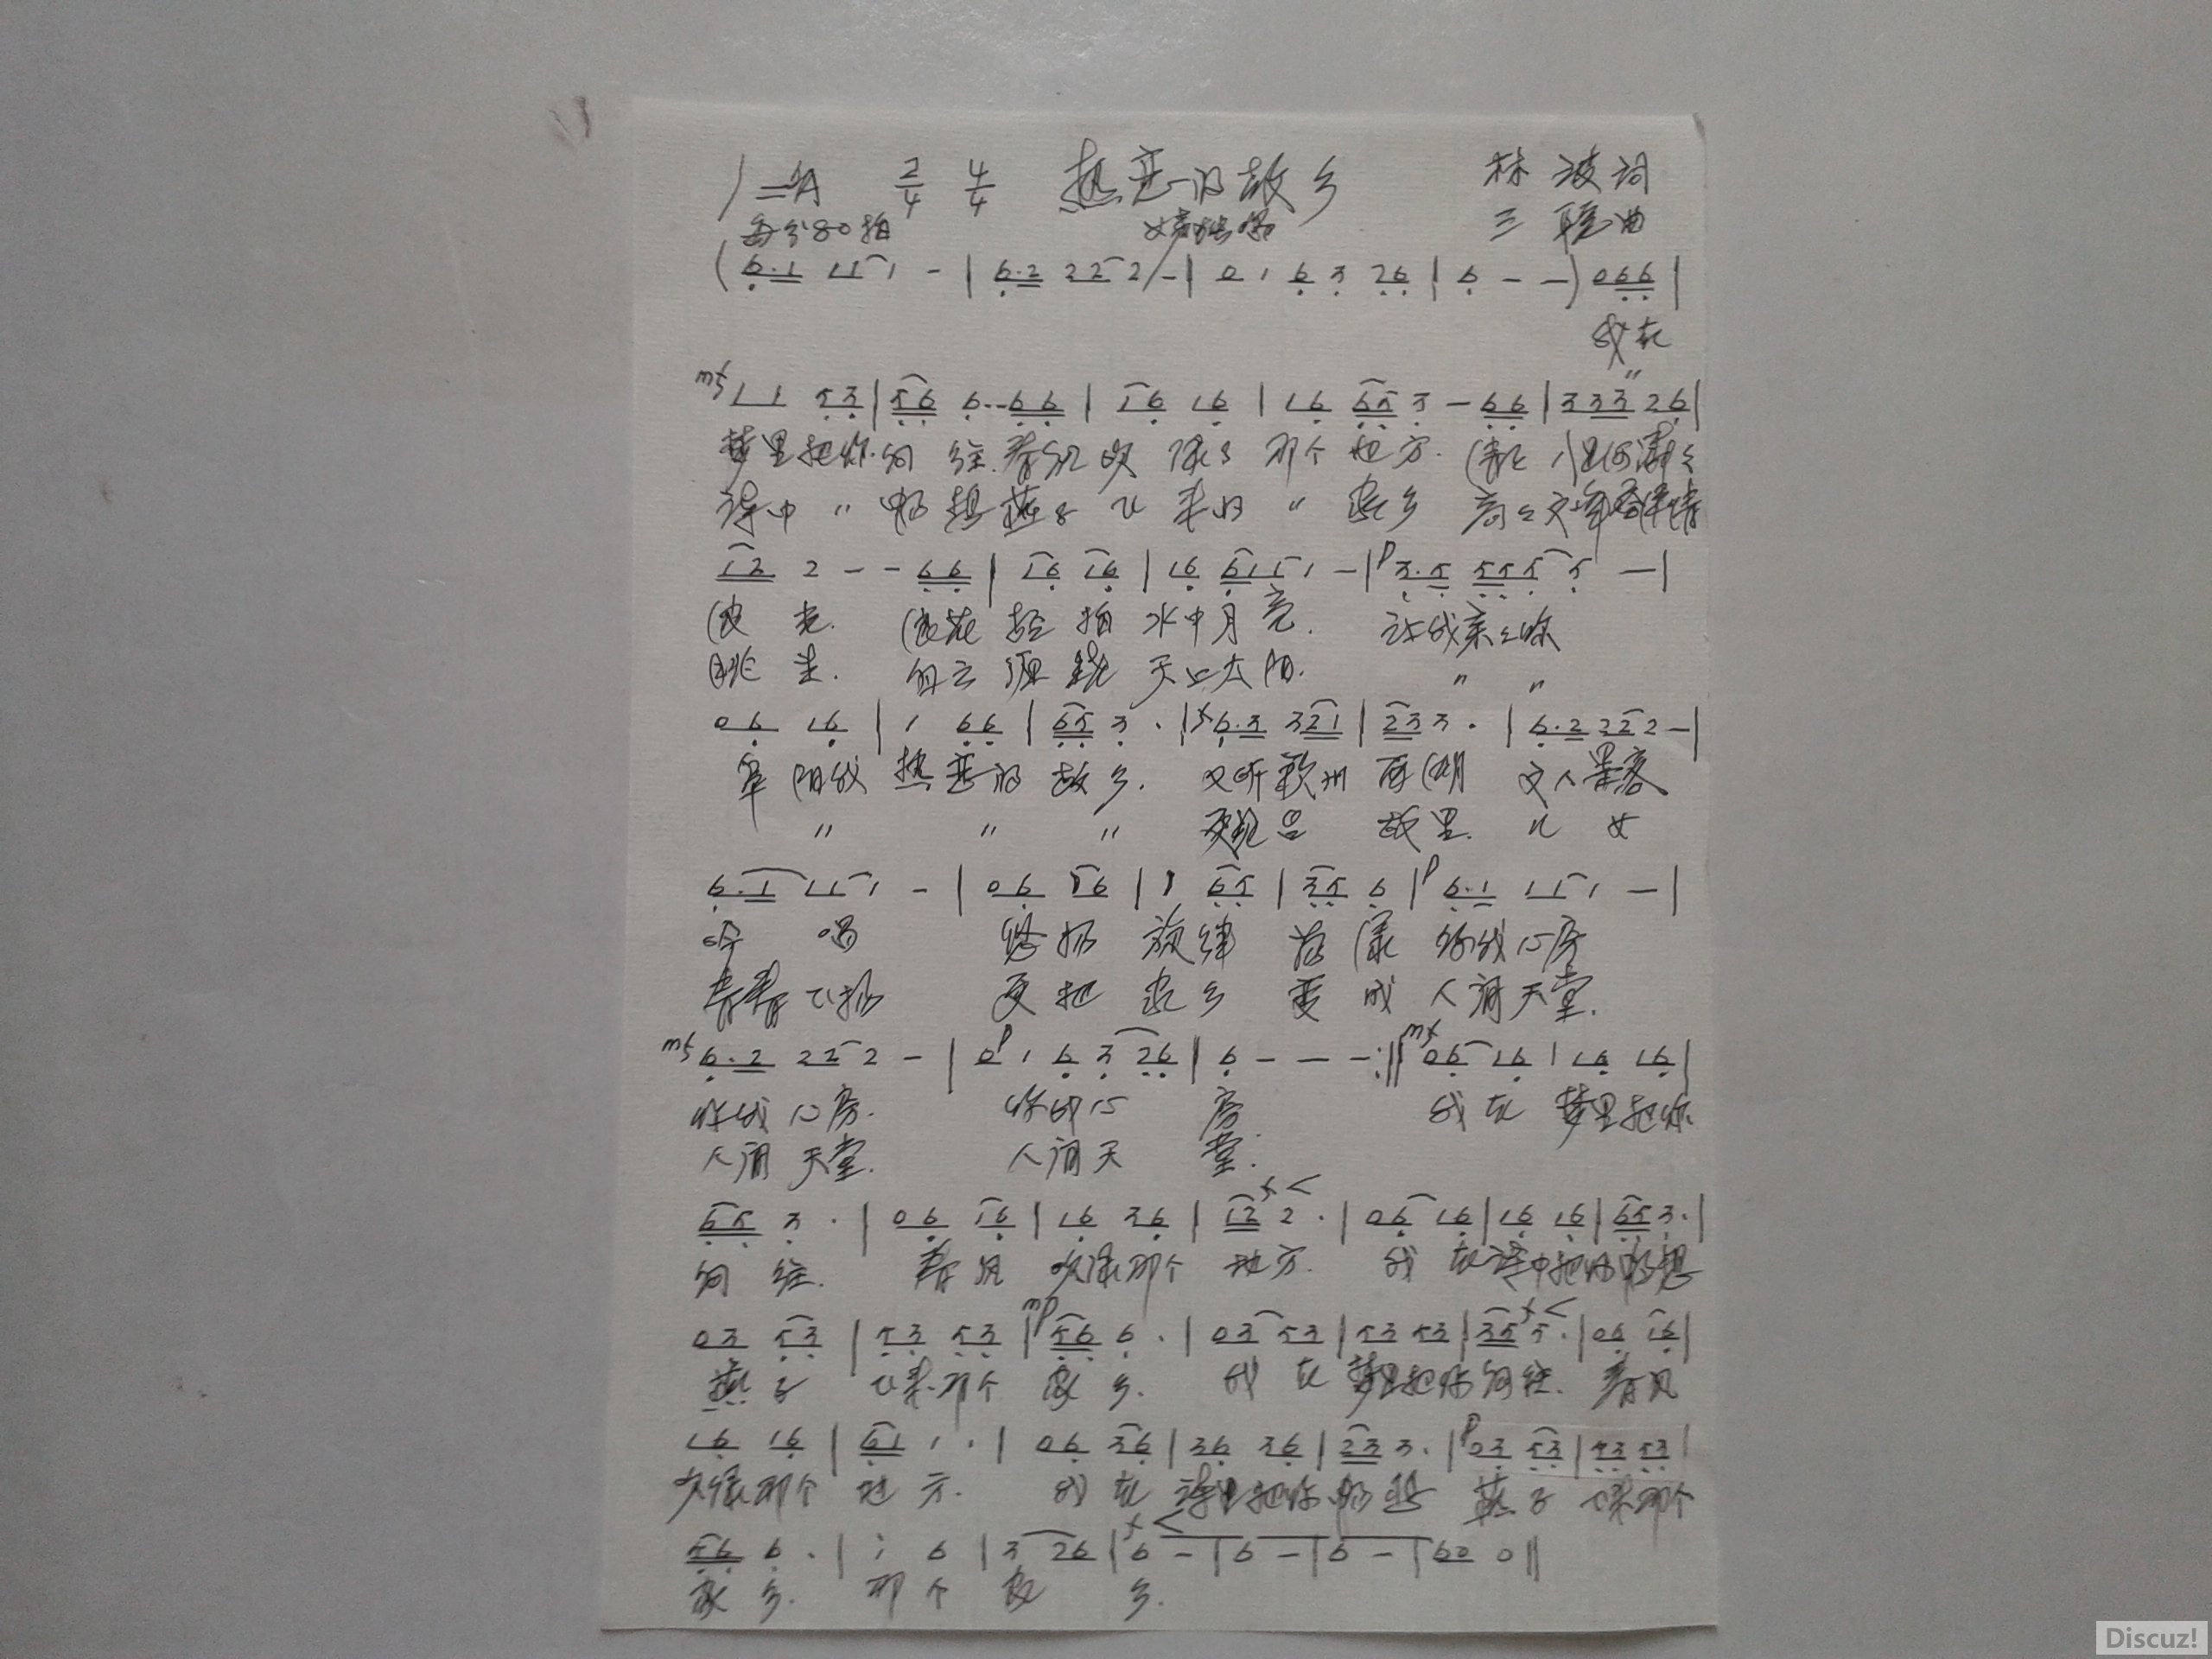 1=A 2/4 4/4 热恋的故乡 林波词
每分80拍 三聪曲
(6.1 11 1 - | 6.2 22 2 - | 0 1 6 3 26 | 6 - - ) 066 |
我在
mf 11 53 | 56 6--66 | 16 16 | 16 65 3 - 66 | 333 26 |
梦里把你向往.春风吹绿了那个地方.
诗中 " 畅想燕子飞来的 " 家乡 高高文峰塔
12 2 - - 66 | 16 16 | 16 611 1 - | p 3.5 555 5 - |
波光. 浪花轻拍水中月亮. 让我亲亲你
眺望. 白云缠绕天上太阳. " "
06 16 | 1 66 | 65 3 . | f 6.3 321 | 233 . | 6.2 22 2 - |
阜阳我热恋的故乡. 又听颍州西湖 文人墨客
" " " 故里. 儿女
6.1 11 1 - | 06 16 | 1 65 | 35 6 | p 6.1 11 1 - |
吟唱 悠扬旋律荡漾你我心房
青春飞扬 更把家乡变成人间天堂.
mf 6.2 22 2 - | 0 p 1 6 3 26 | 6 - - - :|| mf 06 16 | 16 16 |
你我心房. 你我心房. 我在梦里把你
人间天堂. 人间天堂.
65 3 . | 06 16 | 16 36 | 12 f < 2 . | 06 16 | 16 16 | 65 3 . |
向往. 春风吹绿那个地方. 我在诗中把你畅想
03 53 | 53 53 | mp 56 6 . | 03 53 | 53 53 | 35 f < 5 . | 06 16 |
燕子飞来那个家乡. 我在梦里把你向往. 春风
16 16 | 61 1 . | 06 36 | 36 36 | 23 3 . | p 03 53 | 53 53 |
吹绿那个地方. 我在诗里把你畅想 燕子飞来那个
56 6 . | i 6 | 3 26 | f < 6 - | 6 - | 6 - | 60 0 ||
家乡. 那个家乡.
Discuz!